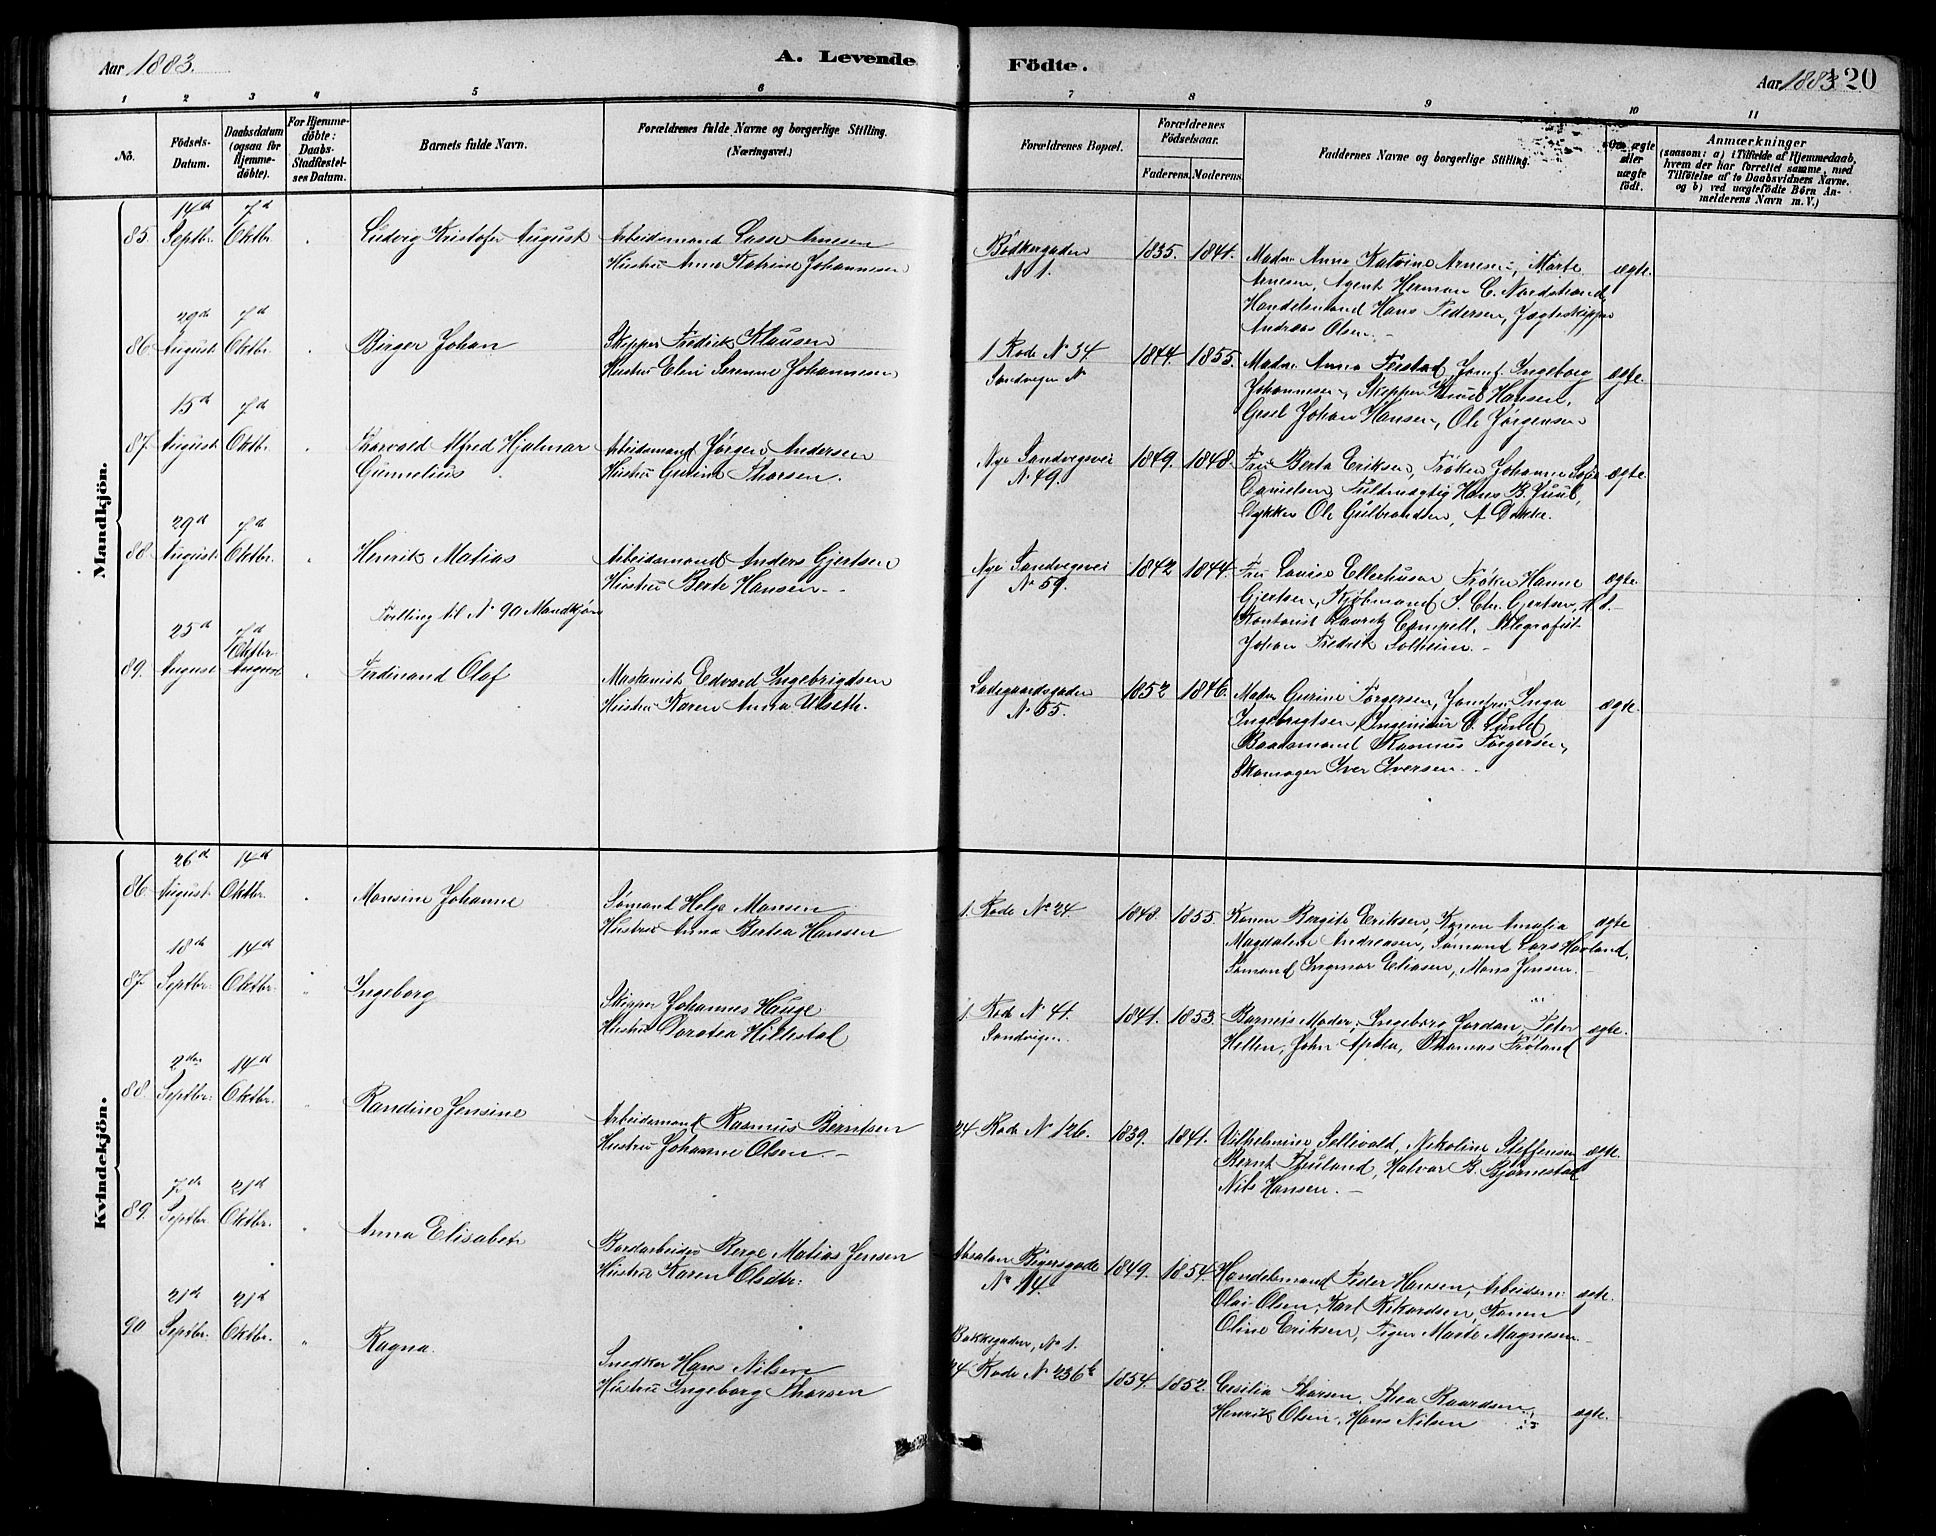 Aar 1883.
A. Levende Födte.
Aar 1883 120
1 2 3 4 5 6 7 8 9 10 11
No.
Födsels-Datum.
Daabsdatum (ogsaa for Hjemme-döbte).
For Hjemme-döbte: Daabs-Stadfæstel-ses Datum.
Barnets fulde Navn.
Forældrenes fulde Navne og borgerlige Stilling. (Næringsvei.)
Forældrenes Bopæl.
Forældrenes Födselsaar.
Faderens. Moderens.
Faddernes Navne og borgerlige Stilling.
Om ægte eller uægte födt.
Anmærkninger
(saasom: a) i Tilfælde af Hjemmedaab, hvem der har forrettet samme, med Tilföielse af to Daabsvidners Navne. og b) ved uægtefödte Börn Anmelderens Navn m. V.)
Mandkjön.
85. 14d Septbr. 7d Oktbr. Ludvig Kristofer August
Arbeidsmand Lasse Arnesen
Hustru Anna Katrine Johannesen
Bødkergaden
N 1.
1835. 1841.
Mad. Anna Katrine Arnesen, Marte
Arnesen, Agent Herman C. Nordstrand,
Handelsmand Hans Pedersen, Jagteskipper
Andreas Olsen.
ægte.
86. 29d August 7d Oktbr. Birger Johan
Skipper Fredrik Klausen
Hustru Elen Serenne Johannesen
1 Rode N 34
Sandvigen N
1844. 1855.
Mad. Anna Feistad, Jomf. Ingeborg
Johannesen, Skipper Knud Hansen,
Gesel Johan Hansen, Ole Jørgensen
ægte.
87. 15d August 7d Oktbr. Thorvald Alfred Hjalmar
Gunnelius
Arbeidsmand Jørgen Andersen
Hustru Gurine Thorsen.
Nye Sandvigsvei
N 49.
1849. 1848.
Fru Berta Eriksen, Frøken Johanne
Danielsen, Fuldmægtig Hans B. Juul,
Ole Gulbrandsen, A Dekke.
ægte.
88. 29d August 7d Oktbr. Henrik Matias
Arbeidsmand Anders Gjertsen
Hustru Berte Hansen.
Tvilling til N 90 Mandkjøn
Nye Sandvigsvei
N 59.
1842 1844.
Fru Lovise Ellerhusen Frøken Hanne
Gjertsen, Kjøbmand S. Chr. Gjertsen,
Kontorist Lauritz Campell, Telegrafist
Johan Fredrik Solheim.
ægte
89. 25d August 7d Oktbr. August Ferdinand Olaf
Maskinist Edvard Ingebrigdsen
Hustru Karen Anna Ulseth.
Ladegaardsgaden
N 55.
1852 1846.
Mad. Gurine Torgersen, Jomfru Inga
Ingebrigtsen, Ingeniør C. Lund,
Baadsmand Rasmus Torgersen,
Skomager Iver Iversen.
ægte.
Kvindekjön.
86. 26d August 14d Oktbr. Monsine Johanne
Sømand Helge Monsen
Hustru Anna Bertea Hansen
1. Rode No 24
1848. 1855.
Konen Bergite Eriksen, Konen Amalia
Magdalene Andreasen, Sømand Lars Havland,
Sømand Ingmar Eliasen, Mons Jensen.
ægte
87. 18d Septbr. 14d Oktbr. Ingeborg
Skipper Johannes Hauge
Hustru Doratea Hillestal
1. Rode N 41.
Sandvigen.
1841. 1853.
Barnets Moder, Ingeborg Jordan, Peter
Hellen, John, Thomas Frøland
ægte.
88. 2den Septbr. 14d Oktbr. Randine Jensine
Arbeidsmand Rasmus Berntsen
Hustru Johanne Olsen.
24 Rode N 126.
1839. 1841.
Vilhelmine Sellevold, Nikoline Steffensen
Bernt, Halvor B. Bjørnestad
Nils Hansen.
ægte.
89. 7de Septbr. 21d Oktbr. Anna Elisabet
Bordarbeider Berge Matias Jensen
Hustru Karen Olsdtr.
Absalon Beyersgade
No 14.
1849. 1854.
Handelsmand Peder Hansen, Arbeidsm.
Olai Olsen, Karl Rikardsen, Konen
Oline Eriksen, Pigen Marte Magnesen.
ægte.
90 21d Septbr. 21d Oktbr. Ragna.
Snedker Hans Nilsen
Hustru Ingeborg Thorsen
Bakkegaden, No 1.
24 Rode N 236b
1854. 1852.
Cesilia Thorsen, Thea Baardsen
Henrik Olsen, Hans Nilsen
ægte.